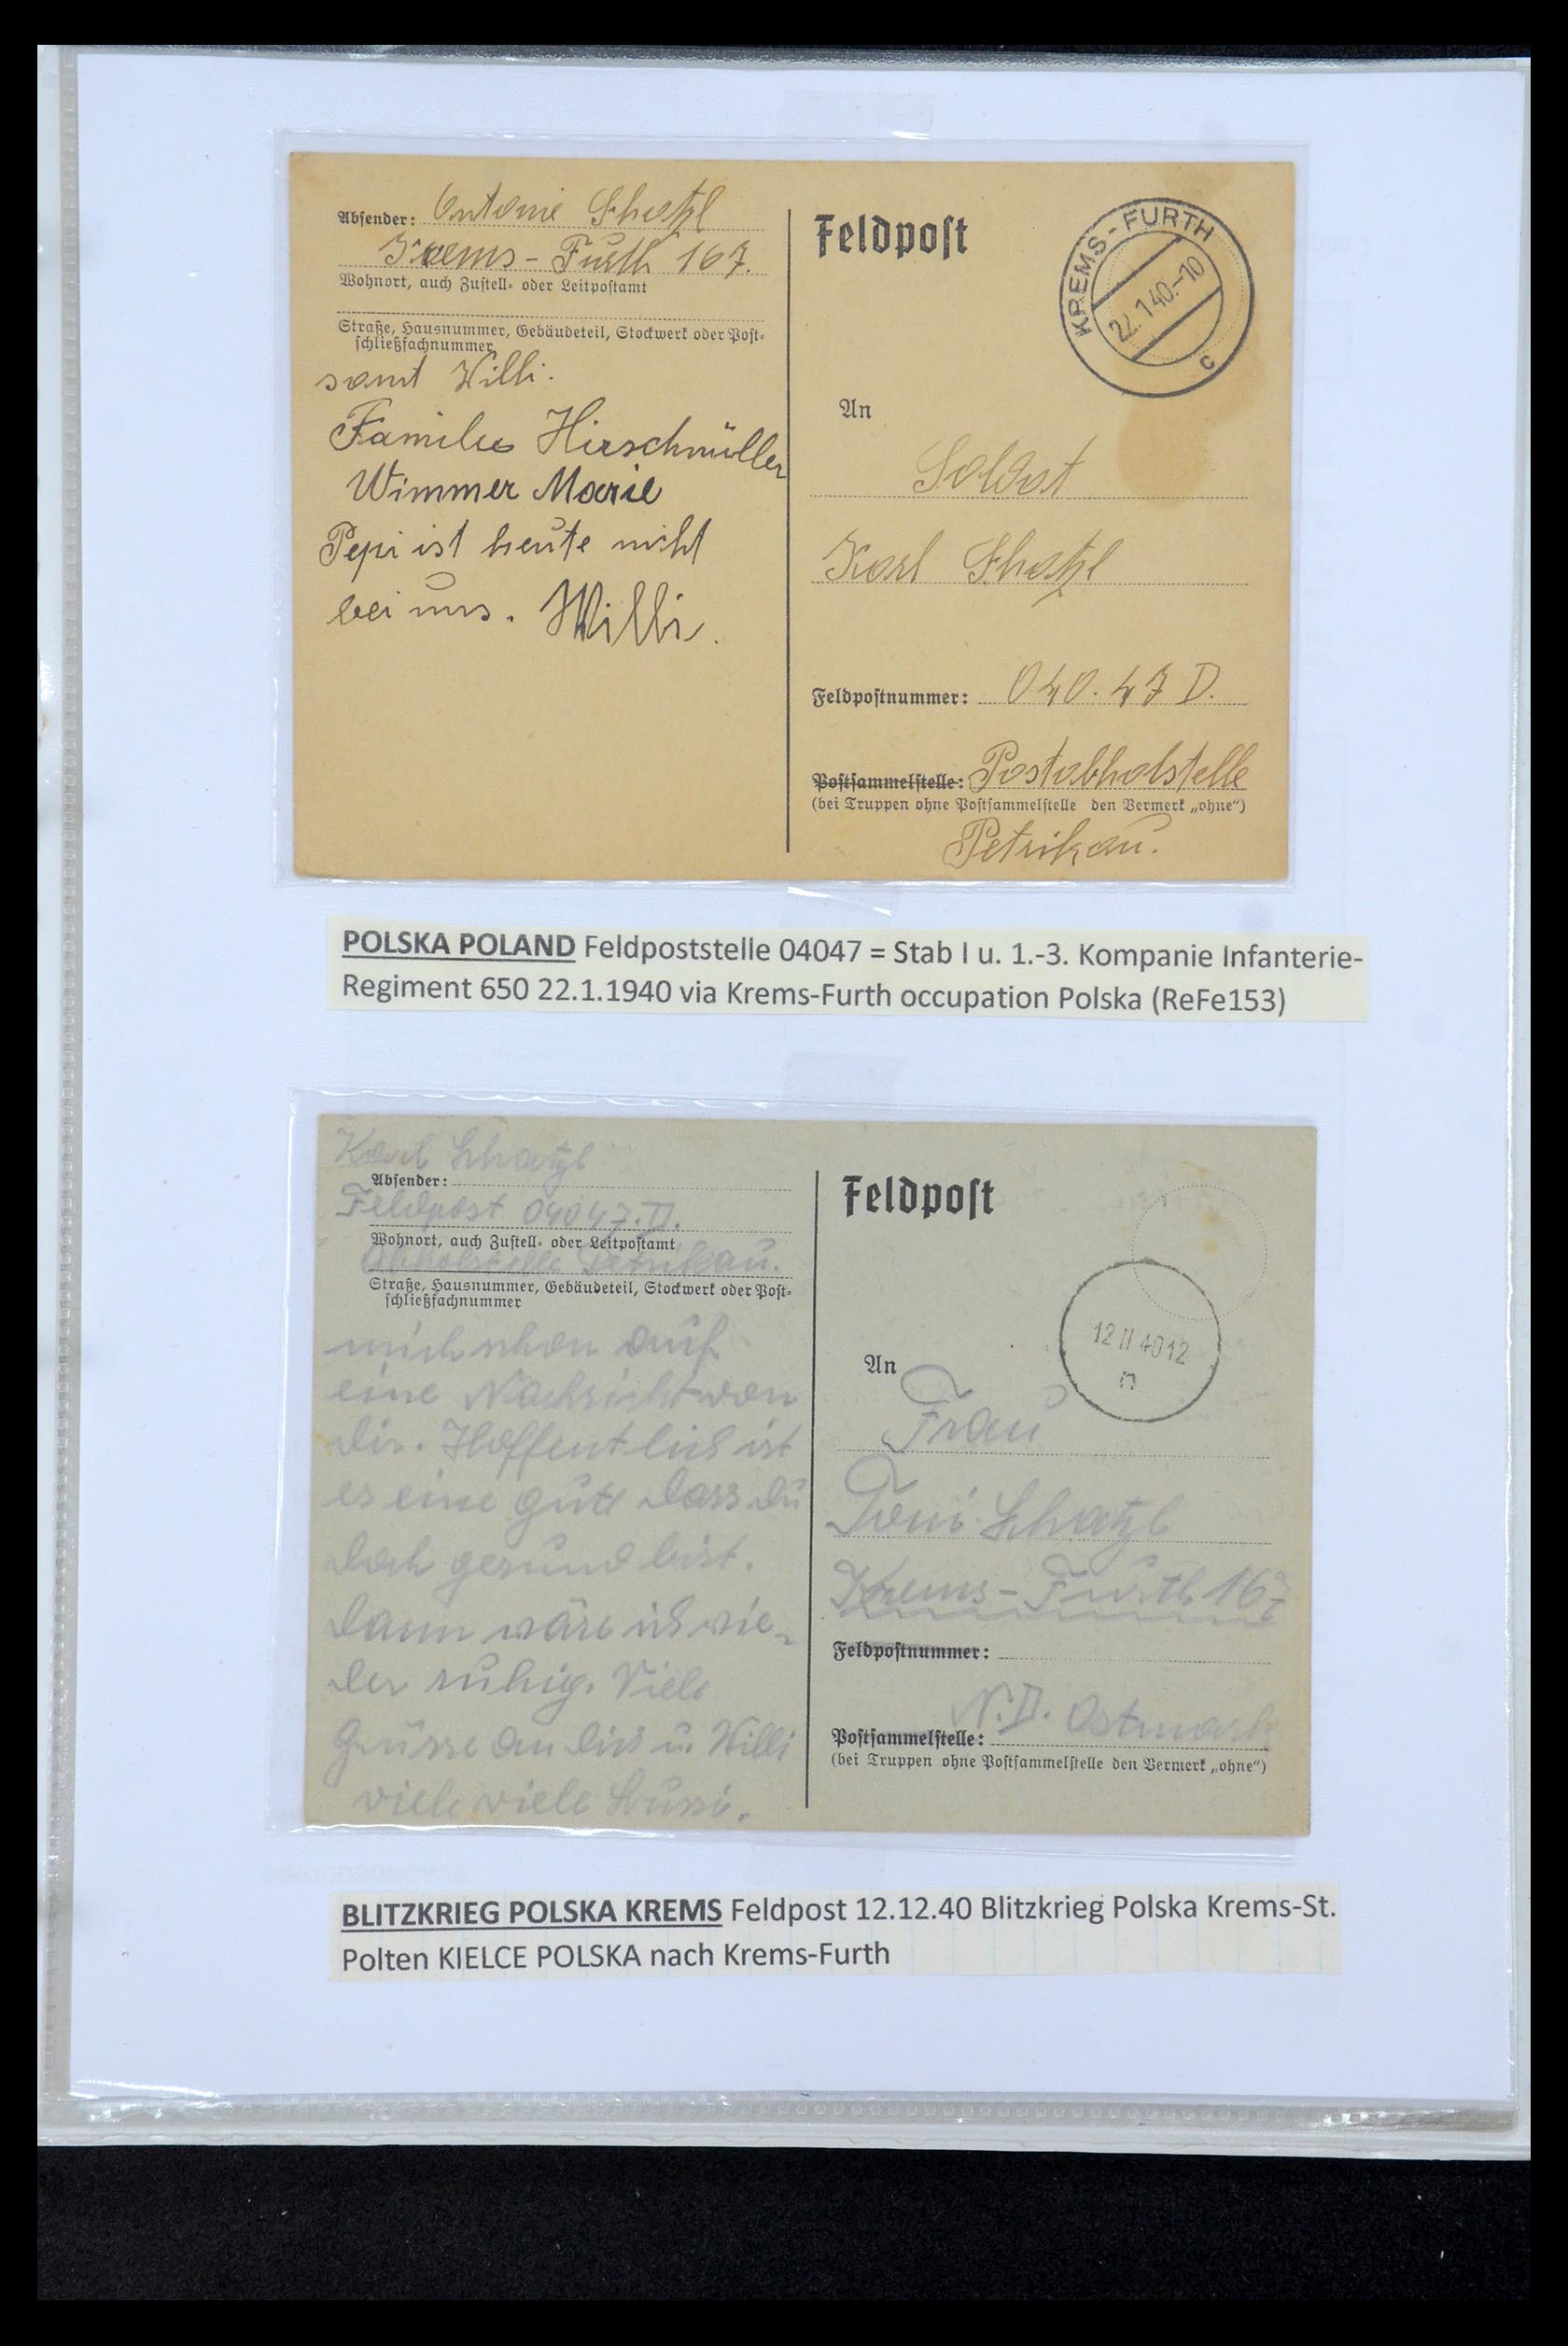 Absender: Antonie Schatzl
Krems-Furth 167.
Wohnort, auch Zustell- oder Leitpostamt
Straße, Hausnummer, Gebäudeteil, Stockwerk oder Post-
schließfachnummer
samt Willi.
Familie Hirschmüller
Wimmer Marie
Pepi ist heute nicht
bei uns. Willi.
Feldpost
KREMS-FURTH
22.1.40.-10
c
An
Soldat
Karl Schatzl
Feldpostnummer: 040.47 D.
Postsammelstelle: Postabholstelle
(bei Truppen ohne Postsammelstelle den Vermerk „ohne“)
Petrikau.
POLSKA POLAND Feldpoststelle 04047 = Stab I u. 1.-3. Kompanie Infanterie-
Regiment 650 22.1.1940 via Krems-Furth occupation Polska (ReFe153)
Karl Schatzl
Absender:
Feldpost 04047.D.
Wohnort, auch Zustell- oder Leitpostamt
Abholstelle Petrikau.
Straße, Hausnummer, Gebäudeteil, Stockwerk oder Post-
schließfachnummer
mich schon auf
eine Nachricht von
dir. Hoffentlich ist
es eine gute dass du
doch gesund bist.
Dann wäre ich wie-
der ruhig. Viele
Grüsse an dich u. Willi
viele viele Bussi.
Feldpost
12 II 40 12
n
An
Frau
Toni Schatzl
Krems-Furth 167
Feldpostnummer:
N.D. Ostmark
Postsammelstelle:
(bei Truppen ohne Postsammelstelle den Vermerk „ohne“)
BLITZKRIEG POLSKA KREMS Feldpost 12.12.40 Blitzkrieg Polska Krems-St.
Polten KIELCE POLSKA nach Krems-Furth